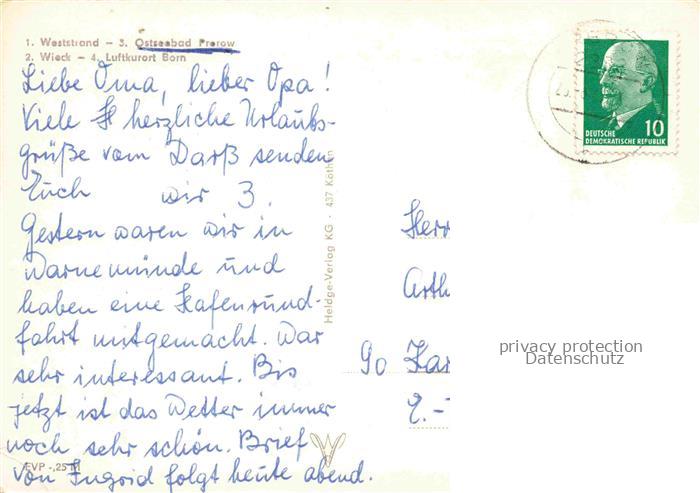 1. Weststrand – 3. Ostseebad Prerow
2. Wieck – 4. Luftkurort Born
Liebe Oma, lieber Opa!
Viele herzliche Urlaubs-
grüße vom Darß senden
Euch wir 3.
Gestern waren wir in
Warnemünde und
haben eine Hafenrund-
fahrt mitgemacht. War
sehr interessant. Bis
jetzt ist das Wetter immer
noch sehr schön. Brief
von Ingrid folgt heute abend.
EVP -,25 M
Heldge-Verlag KG · 437 Köthen
DEUTSCHE
DEMOKRATISCHE REPUBLIK
10
Herr
Arth
90 Kar
privacy protection
Datenschutz